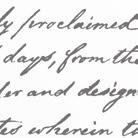 ly proclaimed
days, from the
der and design
tes wherein t